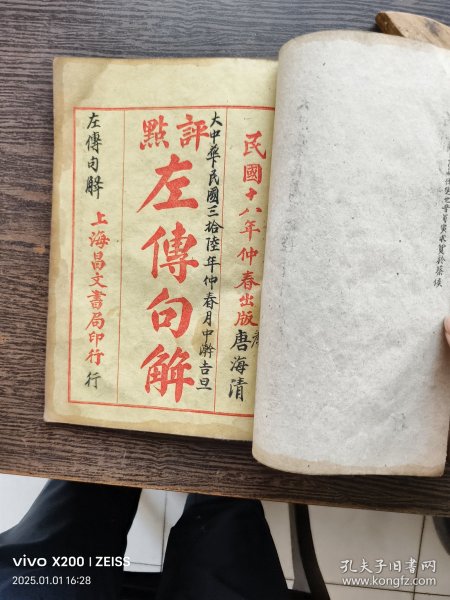 民國十八年仲春出版
唐海清
大中華民國三拾陸年仲春月中澣吉旦
評點
左傳句解
上海昌文書局印行
行
左傳句解
vivo X200 | ZEISS
2025.01.01 16:28
孔夫子旧书网
www.kongfz.com